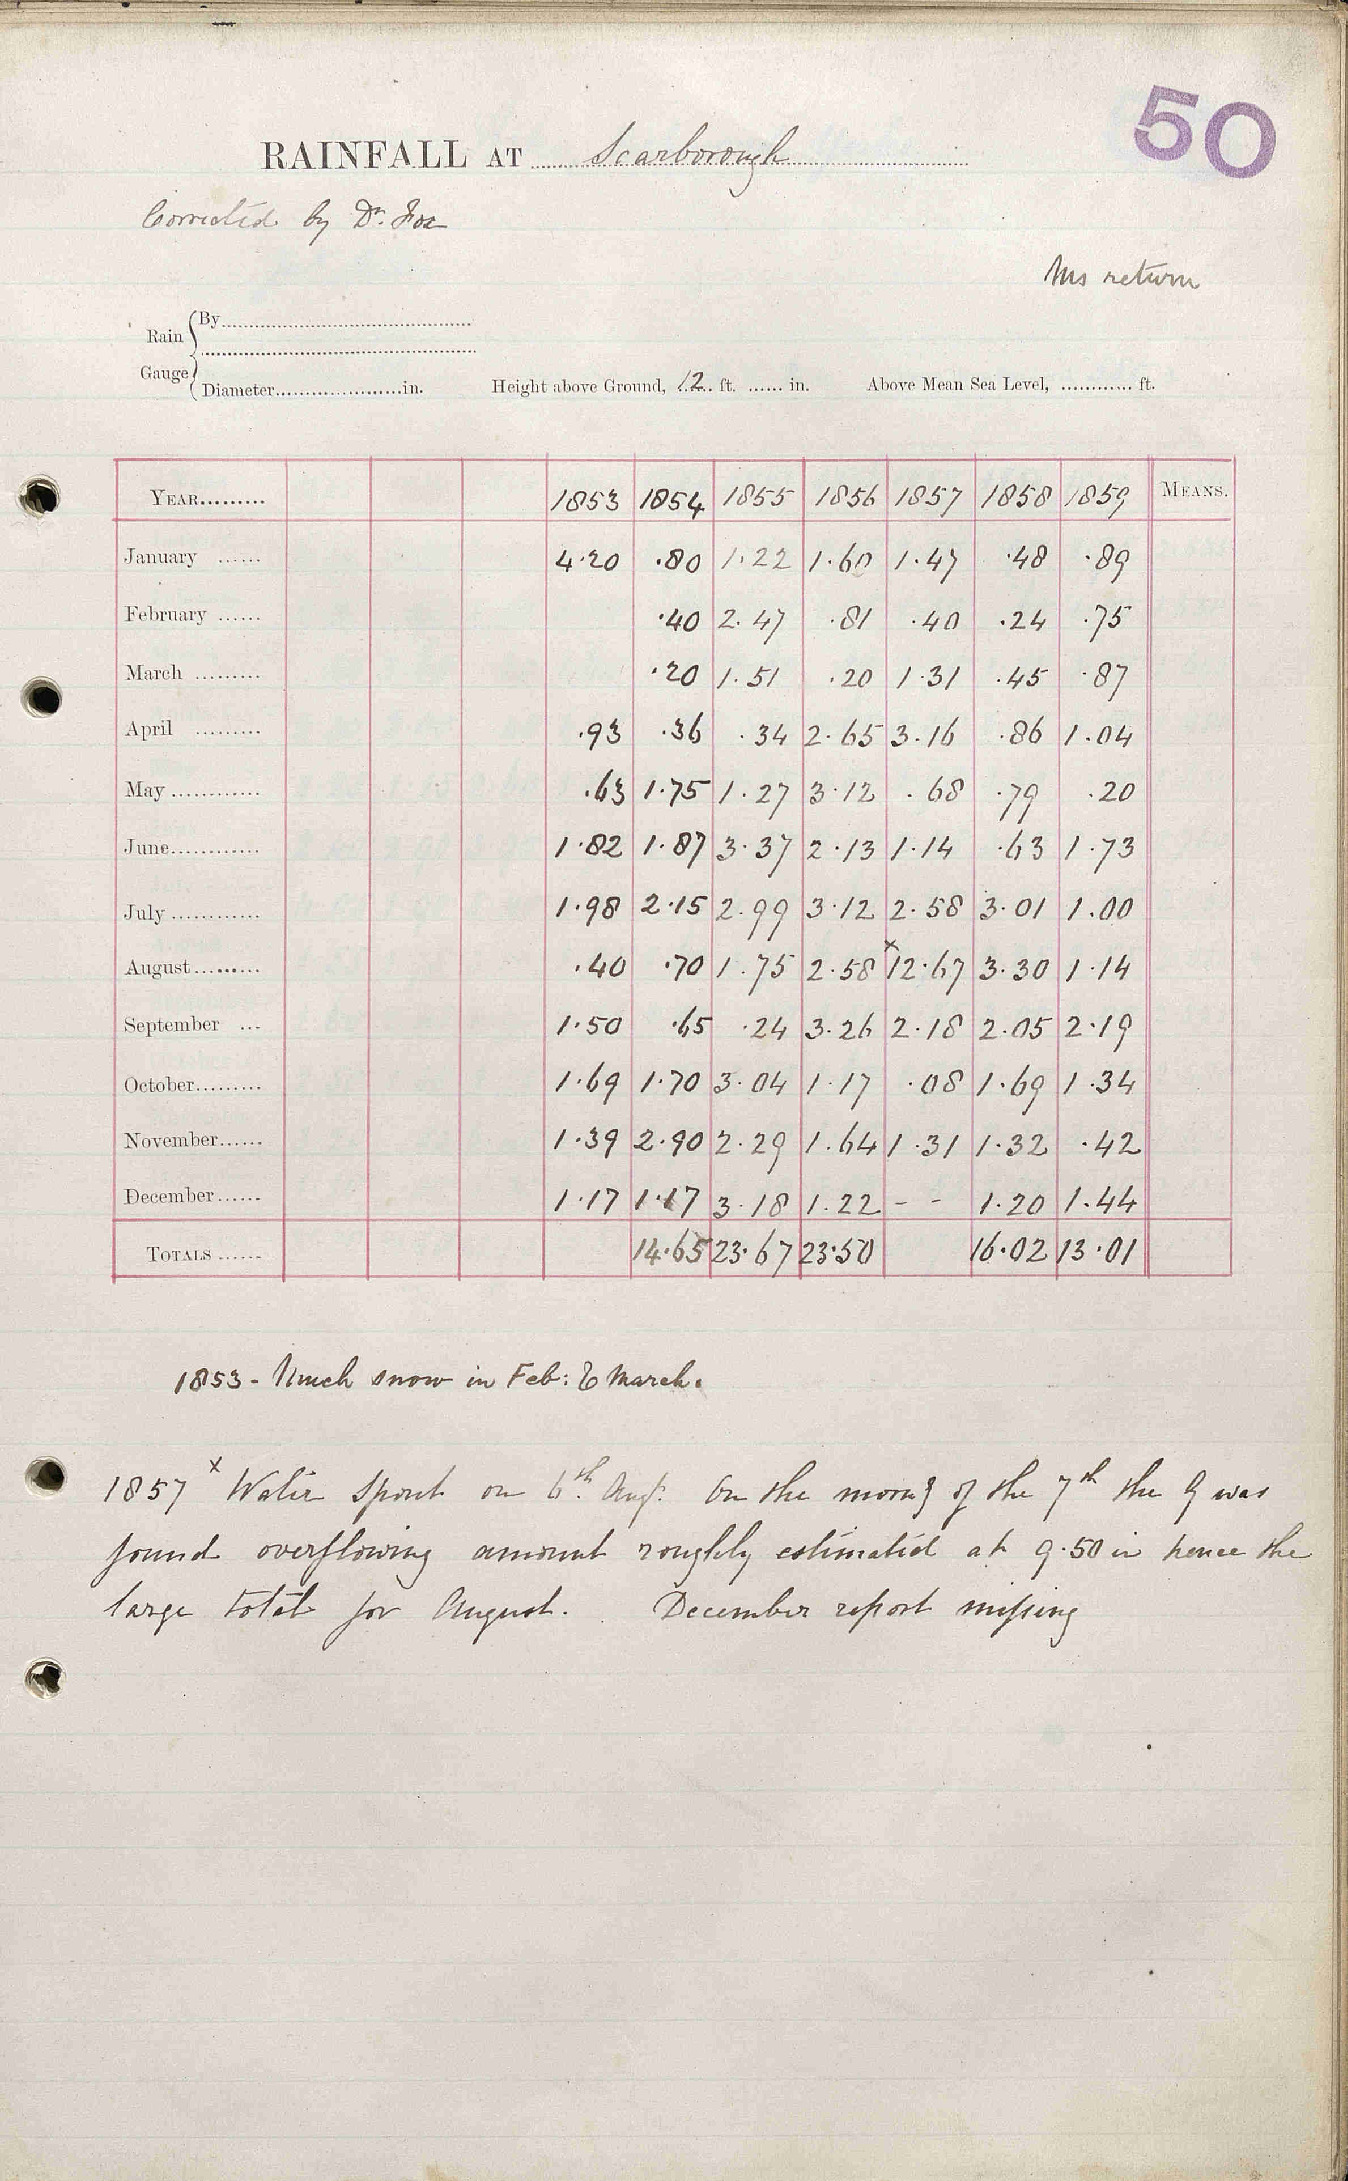 50
RAINFALL AT Scarborough
Corrected by Dr. Fox
Ms return
Rain Gauge { By
Diameter in. Height above Ground, 12 ft. in. Above Mean Sea Level, ft.
YEAR 1853 1854 1855 1856 1857 1858 1859 MEANS.
January 4.20 .80 1.22 1.60 1.47 .48 .89
February .40 2.47 .81 .40 .24 .75
March .20 1.51 .20 1.31 .45 .87
April .93 .36 .34 2.65 3.16 .86 1.04
May .63 1.75 1.27 3.12 .68 .79 .20
June 1.82 1.87 3.37 2.13 1.14 .63 1.73
July 1.98 2.15 2.99 3.12 2.58 3.01 1.00
August .40 .70 1.75 2.58 x12.67 3.30 1.14
September 1.50 .65 .24 3.26 2.18 2.05 2.19
October 1.69 1.70 3.04 1.17 .08 1.69 1.34
November 1.39 2.90 2.29 1.64 1.31 1.32 .42
December 1.17 1.17 3.18 1.22 - - 1.20 1.44
TOTALS 14.65 23.67 23.50 16.02 13.01
1853 - Much snow in Feb: & March.
1857 x Water Spout on 6th Aug. On the morng of the 7th the G was
found overflowing amount roughly estimated at 9.50 in hence the
large total for August. December report missing